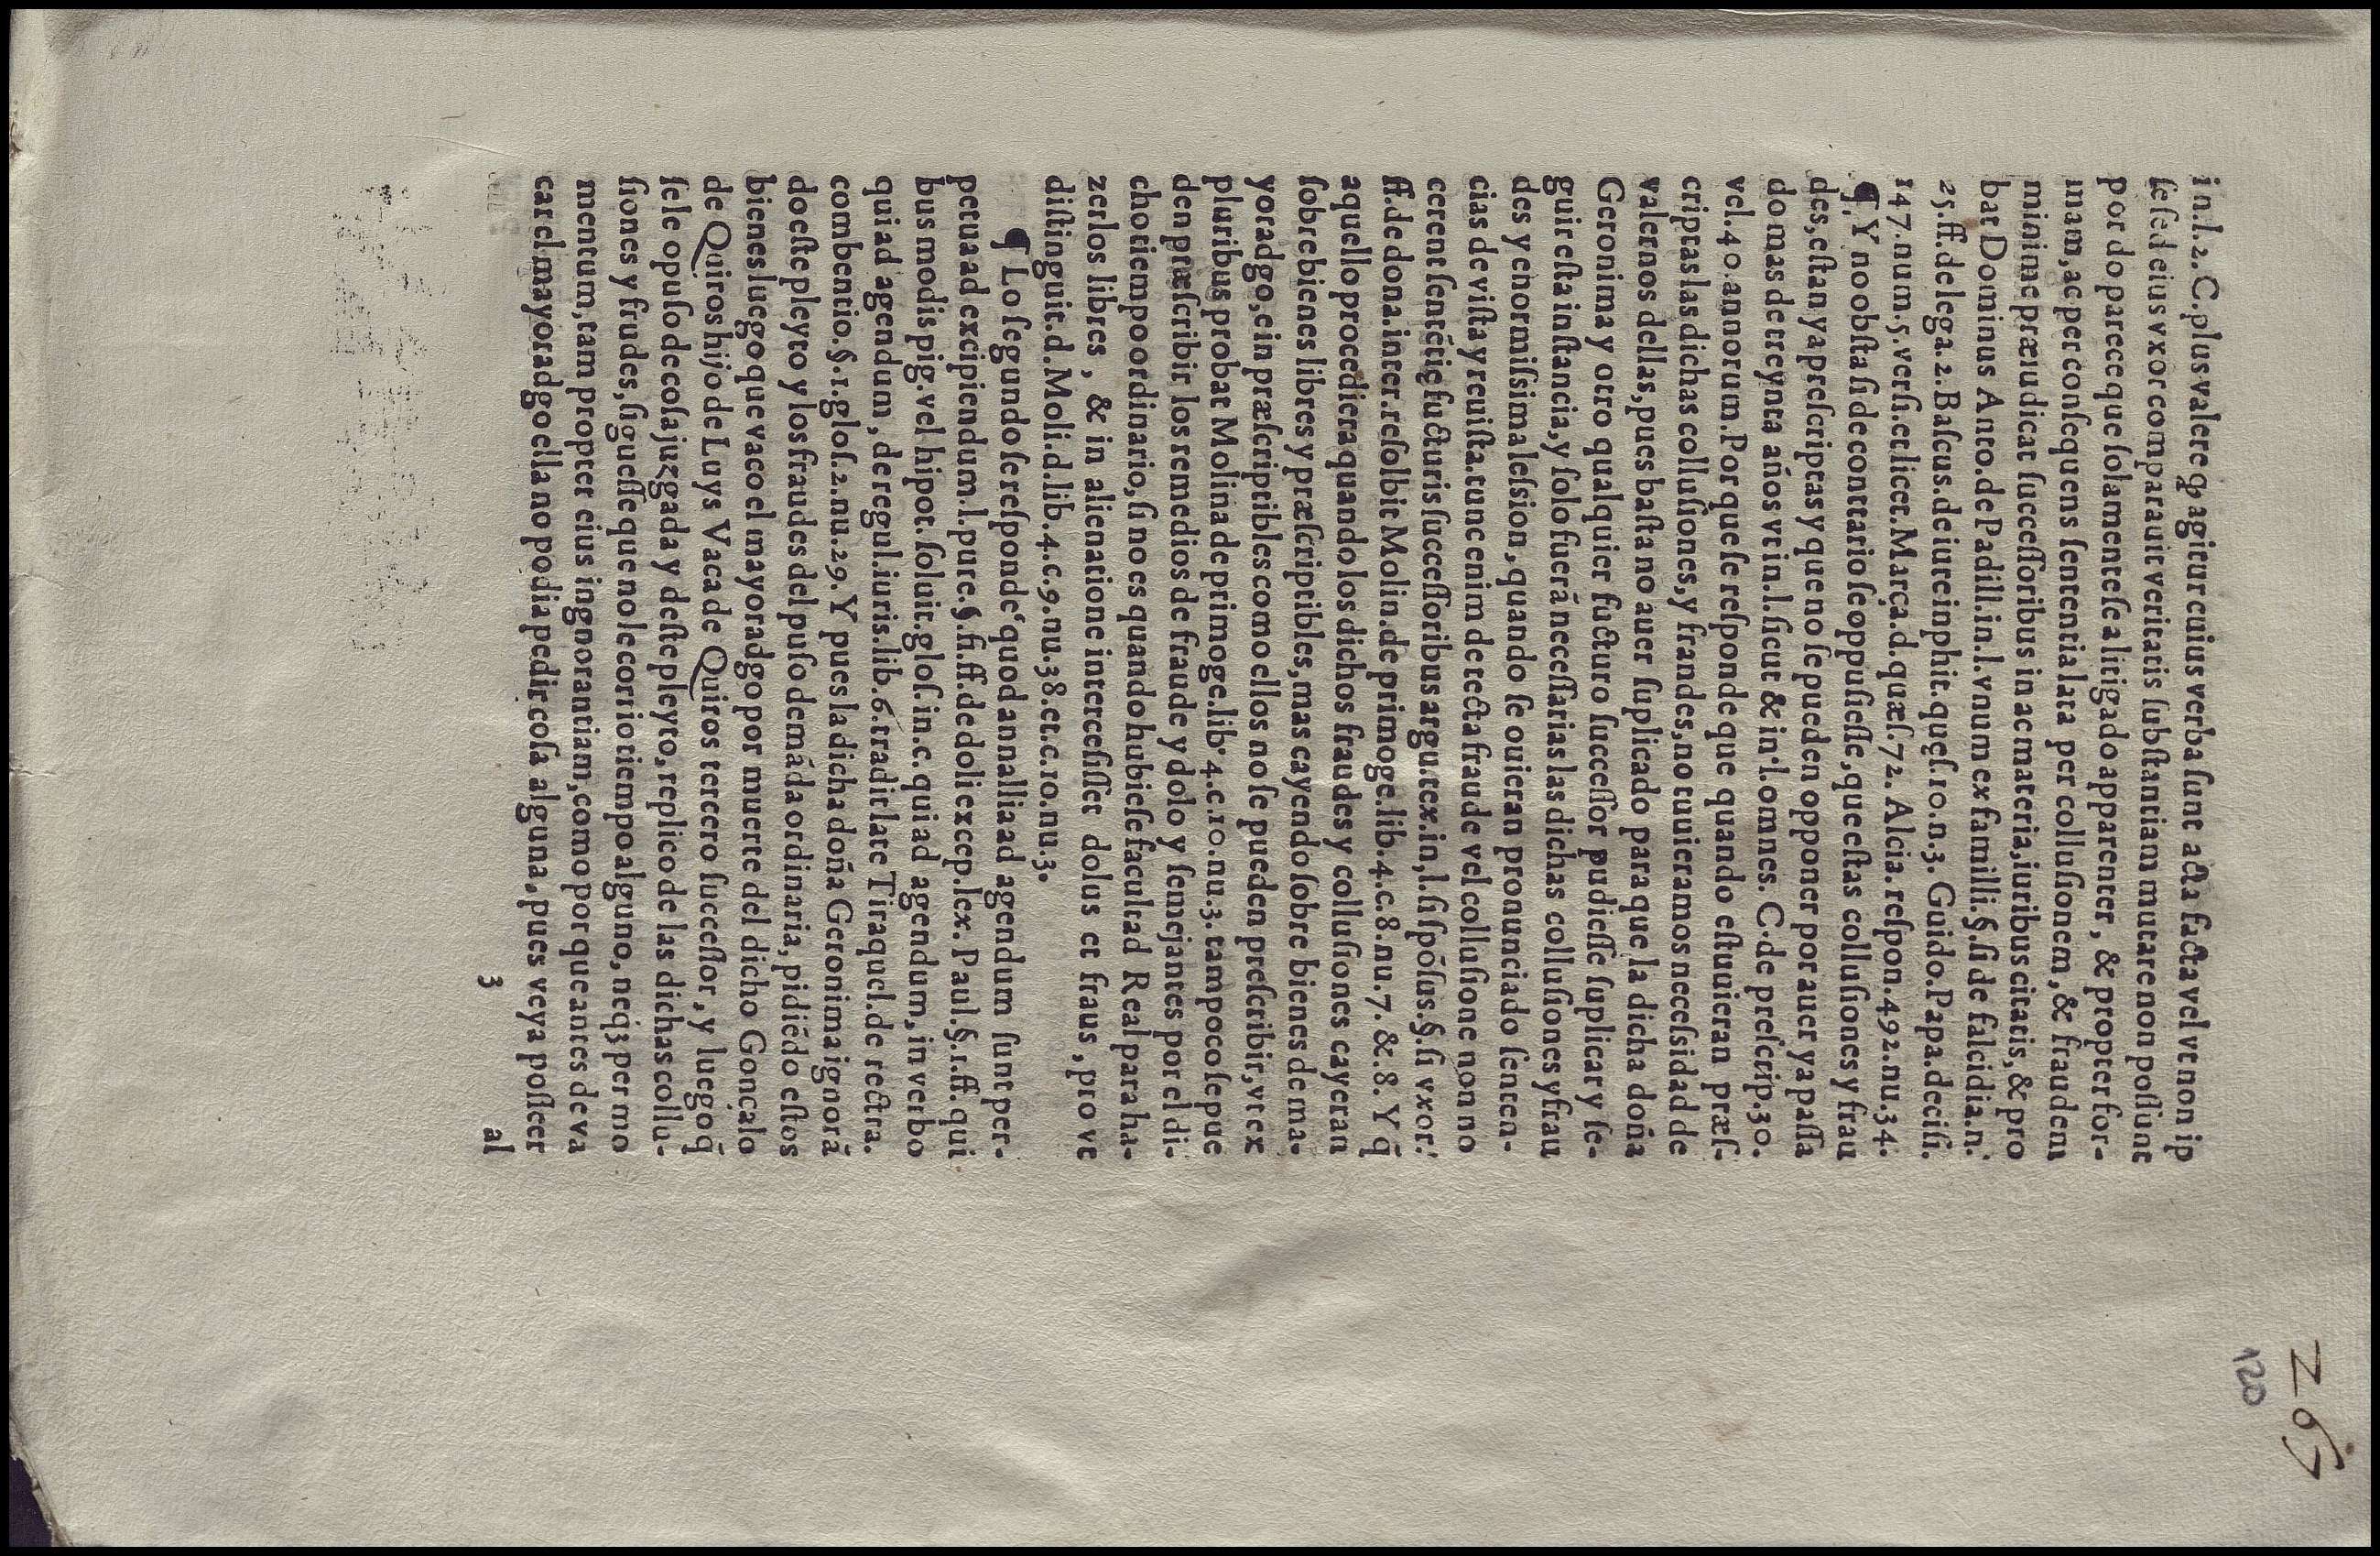 265
120
in.l.2.C.plus valere qȝ agitur cuius verba sunt acta facta vel vt non ip
se sed eius vxor comparauit veritatis substantiam mutare non possunt
por do parece que solamente se a litigado apparenter, & propter for-
mam, ac per consequens sententia lata per collusionem, & fraudem
minime præiudicat successoribus in ac materia, iuribus citatis, & pro
bat Dominus Anto.de Padill.in.l.vnum ex familli.§.si de falcidia.n.
25.ff.de lega.2.Bascus.de iure in phit.quęs.10.n.3. Guido.Papa.decisi.
147.num.5.versi.et licet.Marça.d.quæs.72. Alcia.respon.492.nu.34.
¶ Y no obsta si de conttario se oppusiesse, que estas collusiones y frau
des, estan ya prescriptas y que no se pueden opponer por auer ya passa
do mas de treynta años vt in.l.sicut & in.l.omnes. C.de prescrip.30.
vel.40.annorum. Por que se responde que quando estuuieran præs-
criptas las dichas collusiones, y frandes, no tuuieramos necessidad de
valernos dellas, pues basta no auer suplicado para que la dicha doña
Geronima y otro qualquier fucturo successor pudiesse suplicar y se-
guir esta instancia, y solo fuerã necessarias las dichas collusiones y frau
des y enormissima lession, quando se ouieran pronunciado senten-
cias de vista y reuista. tunc enim de recta fraude vel collusione non no
cerent sentẽtię fucturis successoribus argu.tex.in,l.si spõsus.§.si vxor.
ff.de dona.inter.resolbit Molin.de primoge.lib.4.c.8.nu.7.&.8. Y q̃
aquello procediera quando los dichos fraudes y collusiones cayeran
sobre bienes libres y præscriptibles, mas cayendo sobre bienes de ma-
yoradgo, ein præscriptibles como ellos no se pueden prescribir, vt ex
pluribus probat Molina de primoge.lib.4.c.10.nu.3. tampoco se pue
den præscribir los remedios de fraude y dolo y semejantes por el di-
cho tiempo ordinario, si no es quando hubiese facultad Real para ha-
zerlos libres, & in alienatione intercesisset dolus et fraus, pro vt
distinguit.d.Moli.d.lib.4.c.9.nu.38.et.c.10.nu.3.
¶ Lo segundo se responde quod annallia ad agendum sunt per-
petua ad excipiendum.l.pure.§.fi.ff.de doli excep.lex.Paul.§.1.ff.qui
bus modis pig.vel hipot.soluit.glos.in.c.qui ad agendum, in verbo
qui ad agendum, de regul.iuris.lib.6.tradit late Tiraquel.de rectra.
combentio.§.1.glos.2.nu.29. Y pues la dicha doña Geronima ignorã
do este pleyto y los fraudes del puso demãda ordinaria, pidiẽdo estos
bienes luego que vaco el mayoradgo por muerte del dicho Gonçalo
de Quiros hijo de Luys Vaca de Quiros tercero successor, y luego q̃
sele opuso de cosa juzgada y deste pleyto, replico de las dichas collu-
siones y frudes, siguesse que no le corrio tiempo alguno, neqȝ per mo
mentum, tam propter eius ingnorantiam, como por que antes de va
car el mayoradgo ella no podia pedir cosa alguna, pues veya posseer
3 al